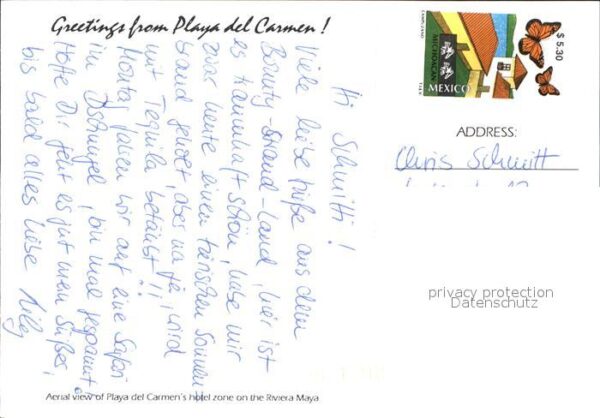 Greetings from Playa del Carmen!
Hi Schmitti!
Viele liebe Grüße aus dem
Strand-Land, hier ist
es traumhaft schön, habe mir
zwar heute einen tierischen Sonnen-
brand geholt, aber na ja, wird
mit Tequila betäubt!!
Montag fahren wir auf eine Safari
in Dschungel, bin mal gespannt.
Hoffe Dir geht es gut mein Süßer,
bis bald alles Liebe
$ 5.30
MICHOACAN
MEXICO
ADDRESS:
Chris Schmitt
privacy protection
Datenschutz
Aerial view of Playa del Carmen's hotel zone on the Riviera Maya